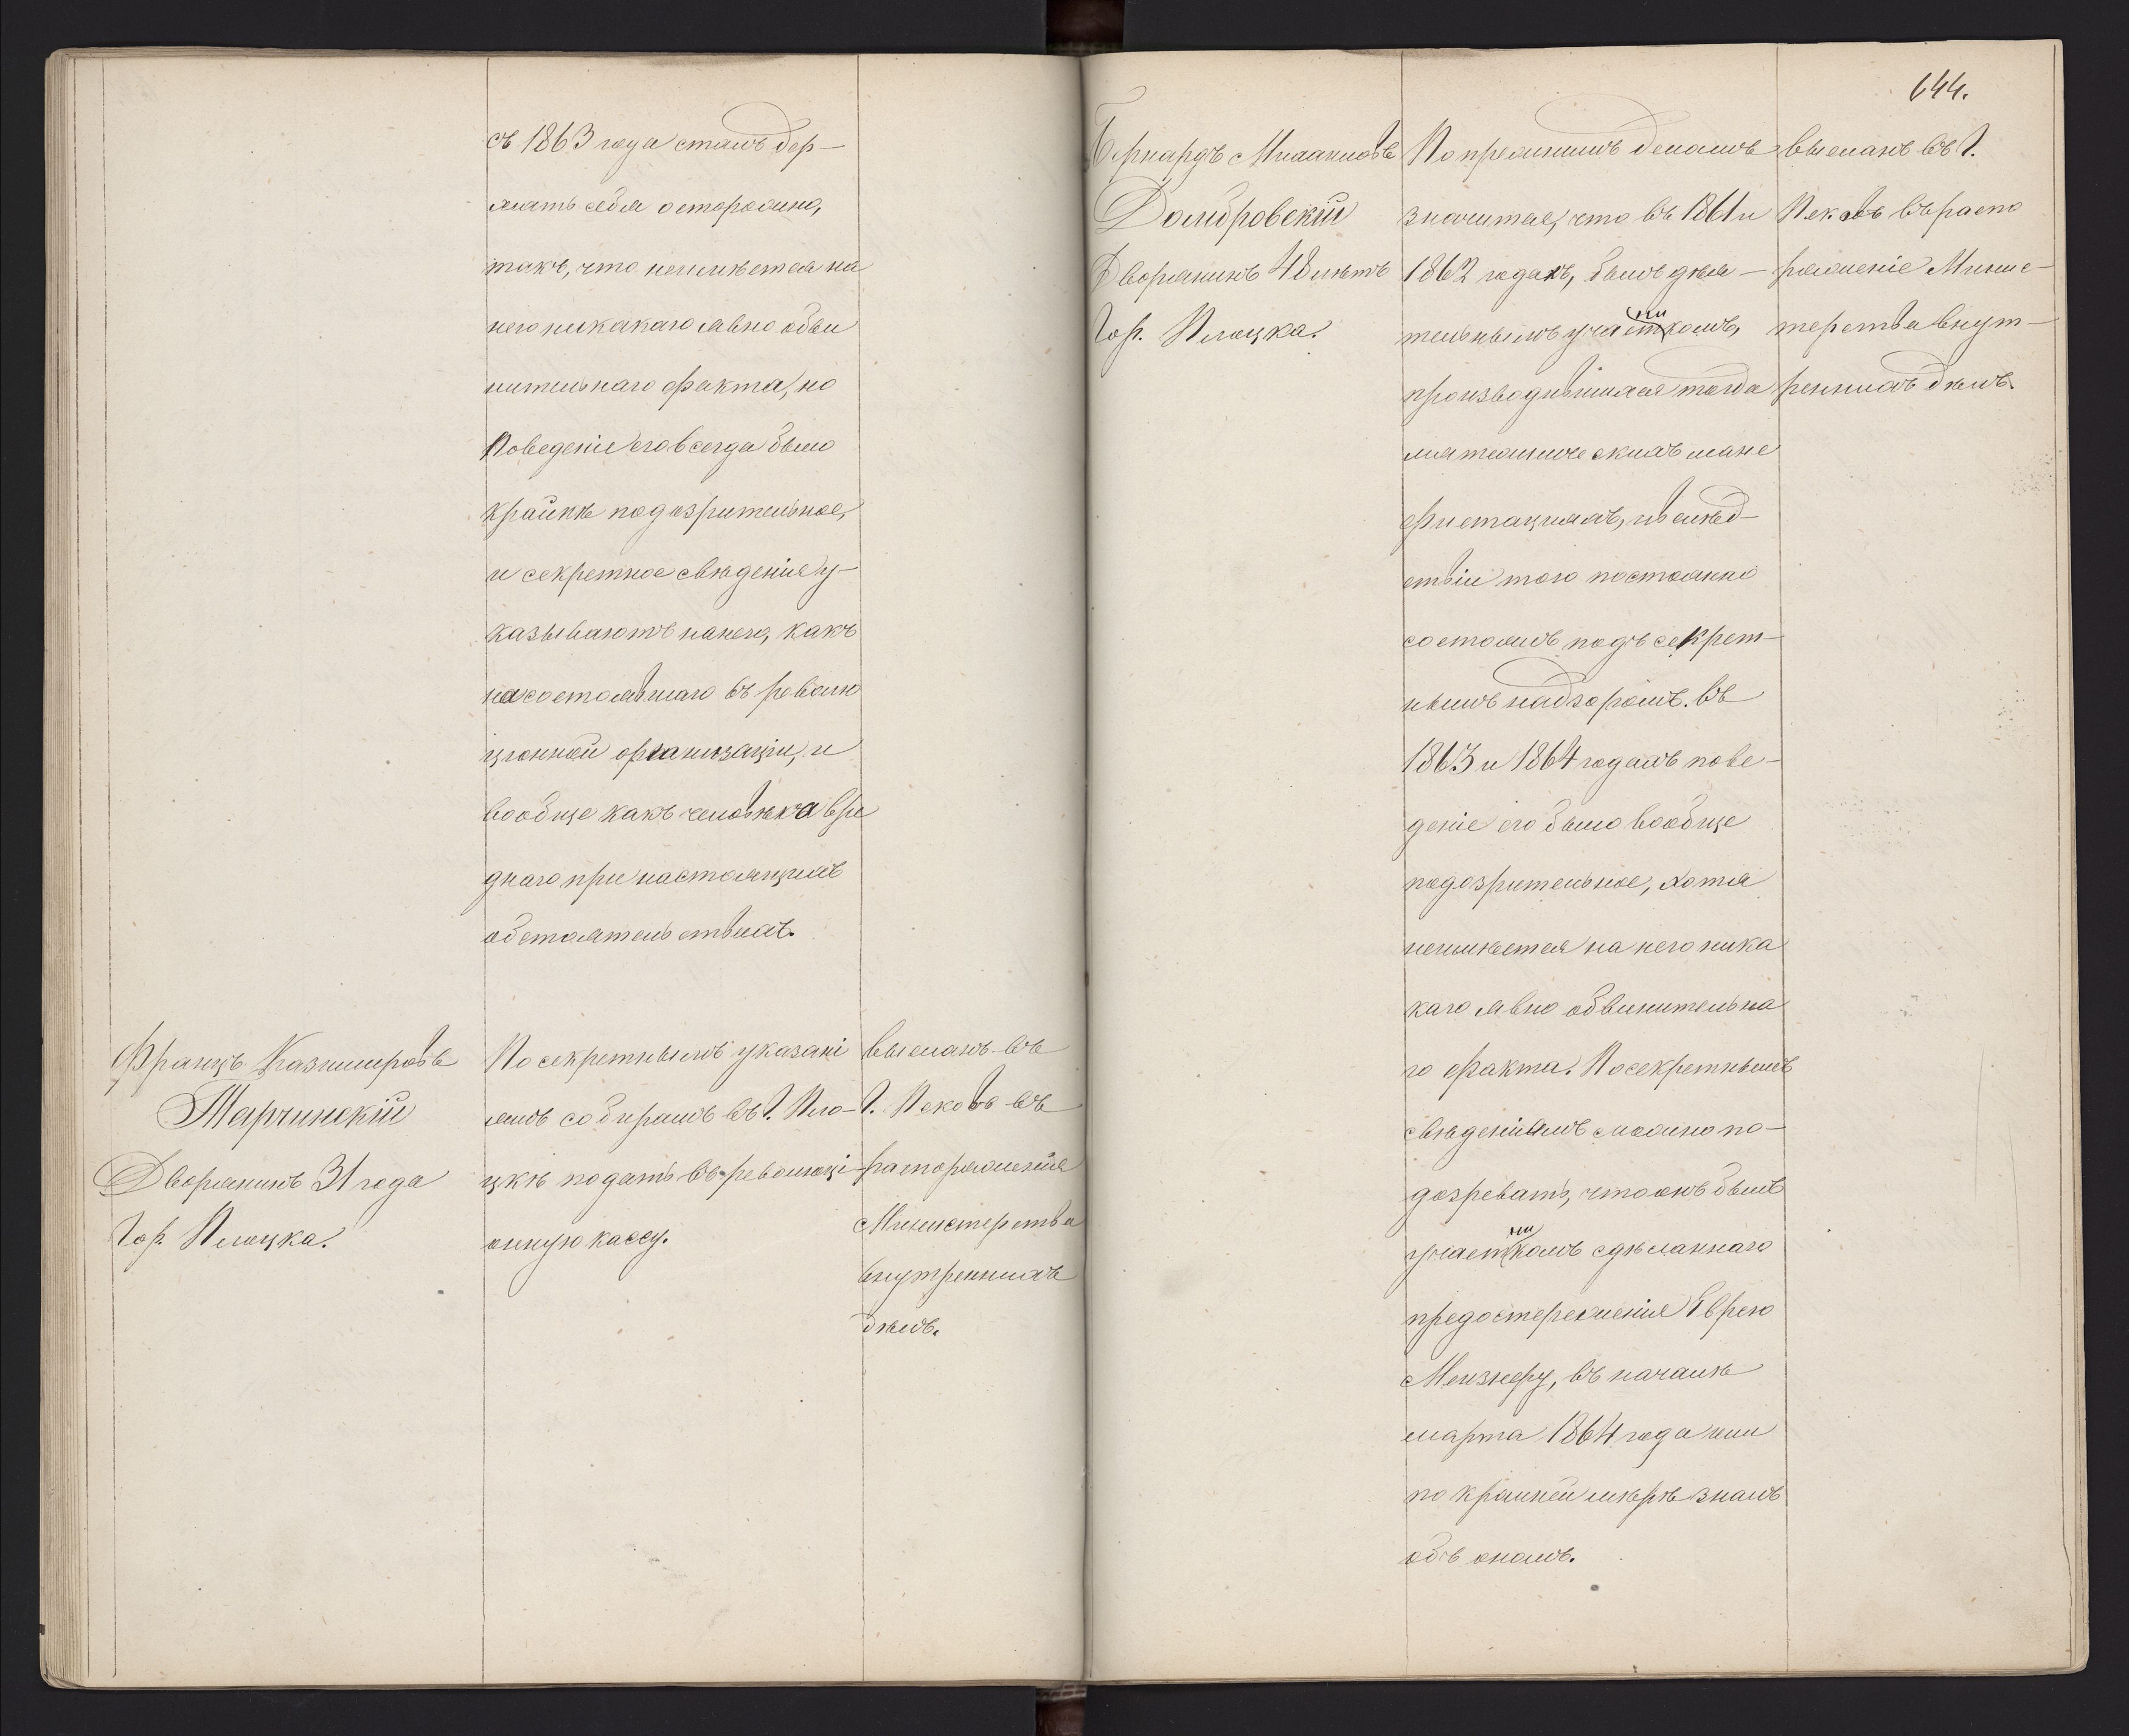 съ 1863 года сталъ дер-
жать себя осторожно,
такъ, что неимѣется на
него никакаго явно обви
нительнаго факта, но
поведеніе его всегда было
крайнѣ подозрительное,
и секретное свѣденія у-
казываютъ на него, какъ
на состоявшаго въ револю
ціонной организаціи, и
вообще какъ человѣка вре
днаго при настоящихъ
обстоятельствахъ.
Францъ Казимировъ
Тарчинскій
Дворянинъ 31 года
Гор. Плоцка.
По секретнымъ указані
ямъ собиралъ въ г. Пло-
цкѣ подать въ революці-
онную кассу.
высланъ въ
г. Псковъ въ
распоряженія
Министерства
внутреннихъ
дѣлъ.
644.
Бернардъ Михаиловъ
Домбровскій
Дворянинъ 48 лѣтъ
Гор. Плоцка.
По прежнимъ деламъ
значится, что въ 1861 и
1862 годахъ, былъ дѣя-
тельнымъ участникомъ,
производившихся тогда
мятежническихъ мане
фистацияхъ, и вслѣд-
ствіи того постоянно
состоялъ подъ секрет-
нымъ надзоромъ. Въ
1863 и 1864 годахъ пове-
деніе его было вообще
подозрительное, хотя
неимѣется на него ника
каго явно обвинительна
го факта. По секретнымъ
свѣденіямъ можно по-
дозревать, что онъ былъ
участникомъ сдѣланнаго
предостереженія Еврею
Мейзнеру, въ началѣ
марта 1864 года или
по крайней мѣрѣ зналъ
объ ономъ.
высланъ въ г.
Псковъ въ распо
ряженіе Минис-
терства внут-
реннихъ дѣлъ.